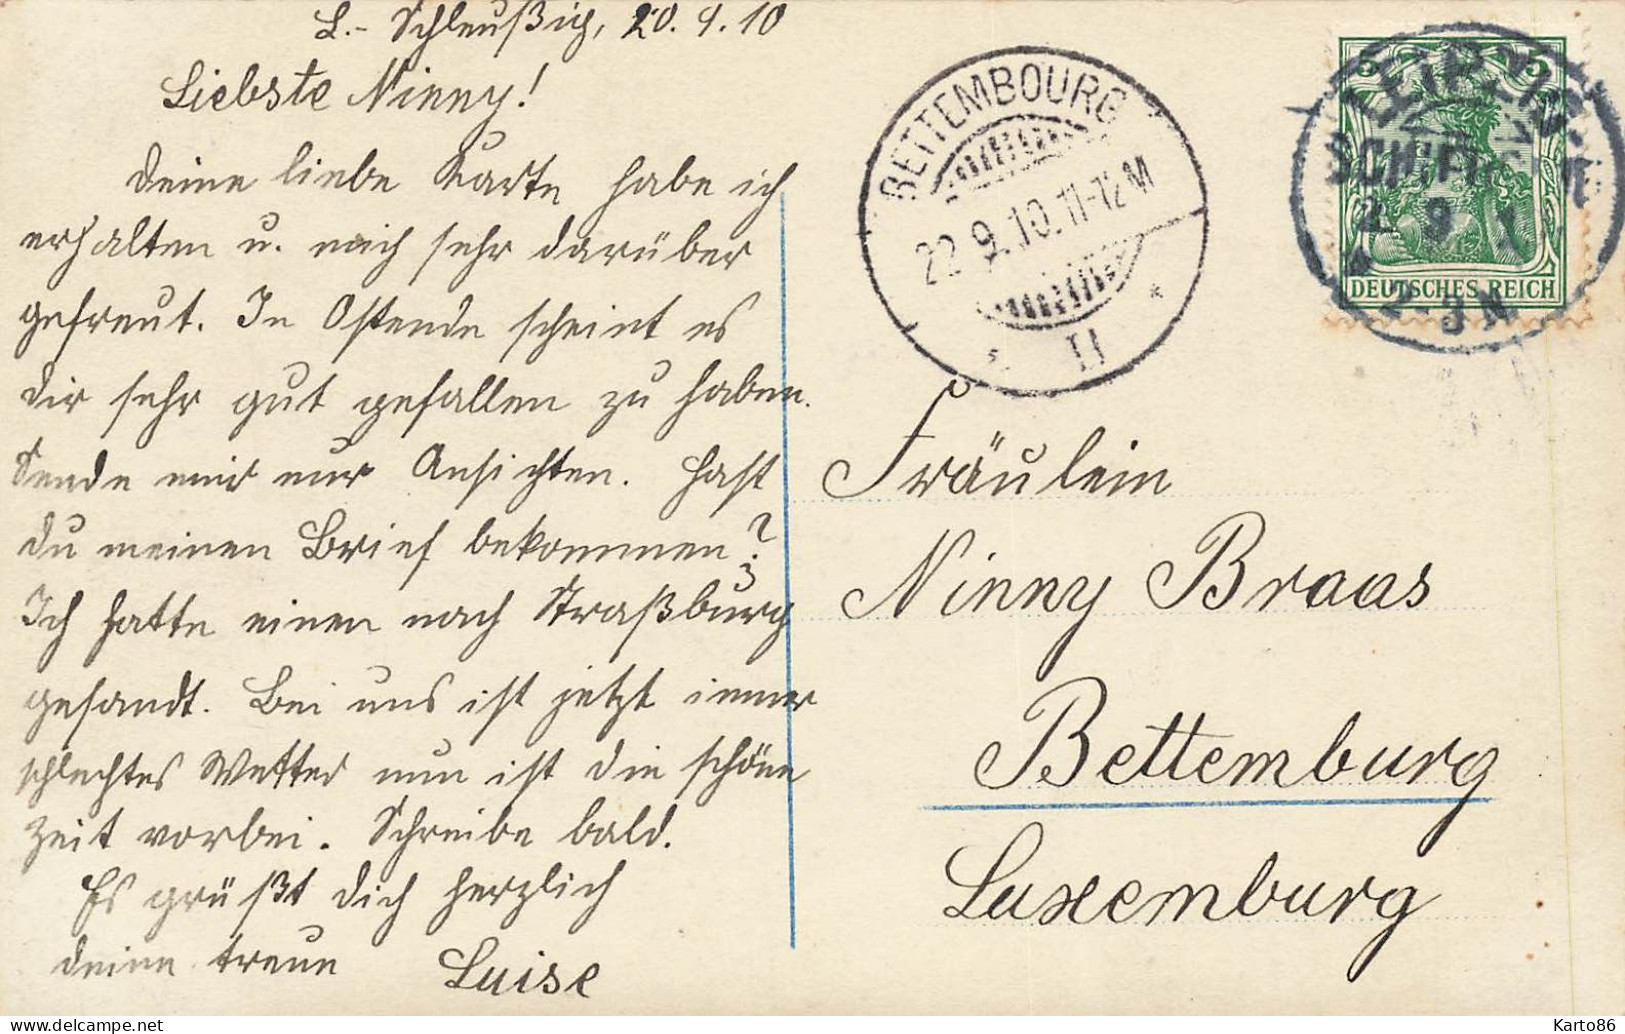 L.- Schleußig, 20. 9. 10
Liebste Ninny!
Deine liebe Karte habe ich
erhalten u. mich sehr darüber
gefreut. In Ostende scheint es
dir sehr gut gefallen zu haben.
Sende mir nur Ansichten. Hast
du meinen Brief bekommen?
Ich hatte einen nach Straßburg
gesandt. Bei uns ist jetzt immer
schlechtes Wetter nun ist die schöne
Zeit vorbei. Schreibe bald.
Es grüßt dich herzlich
deine treue Luise
BETTEMBOURG
22.9.10.11-12M
LEIPZIG-
5 5
DEUTSCHES REICH
Fräulein
Ninny Braas
Bettemburg
Luxemburg
delcampe.net
Karto86